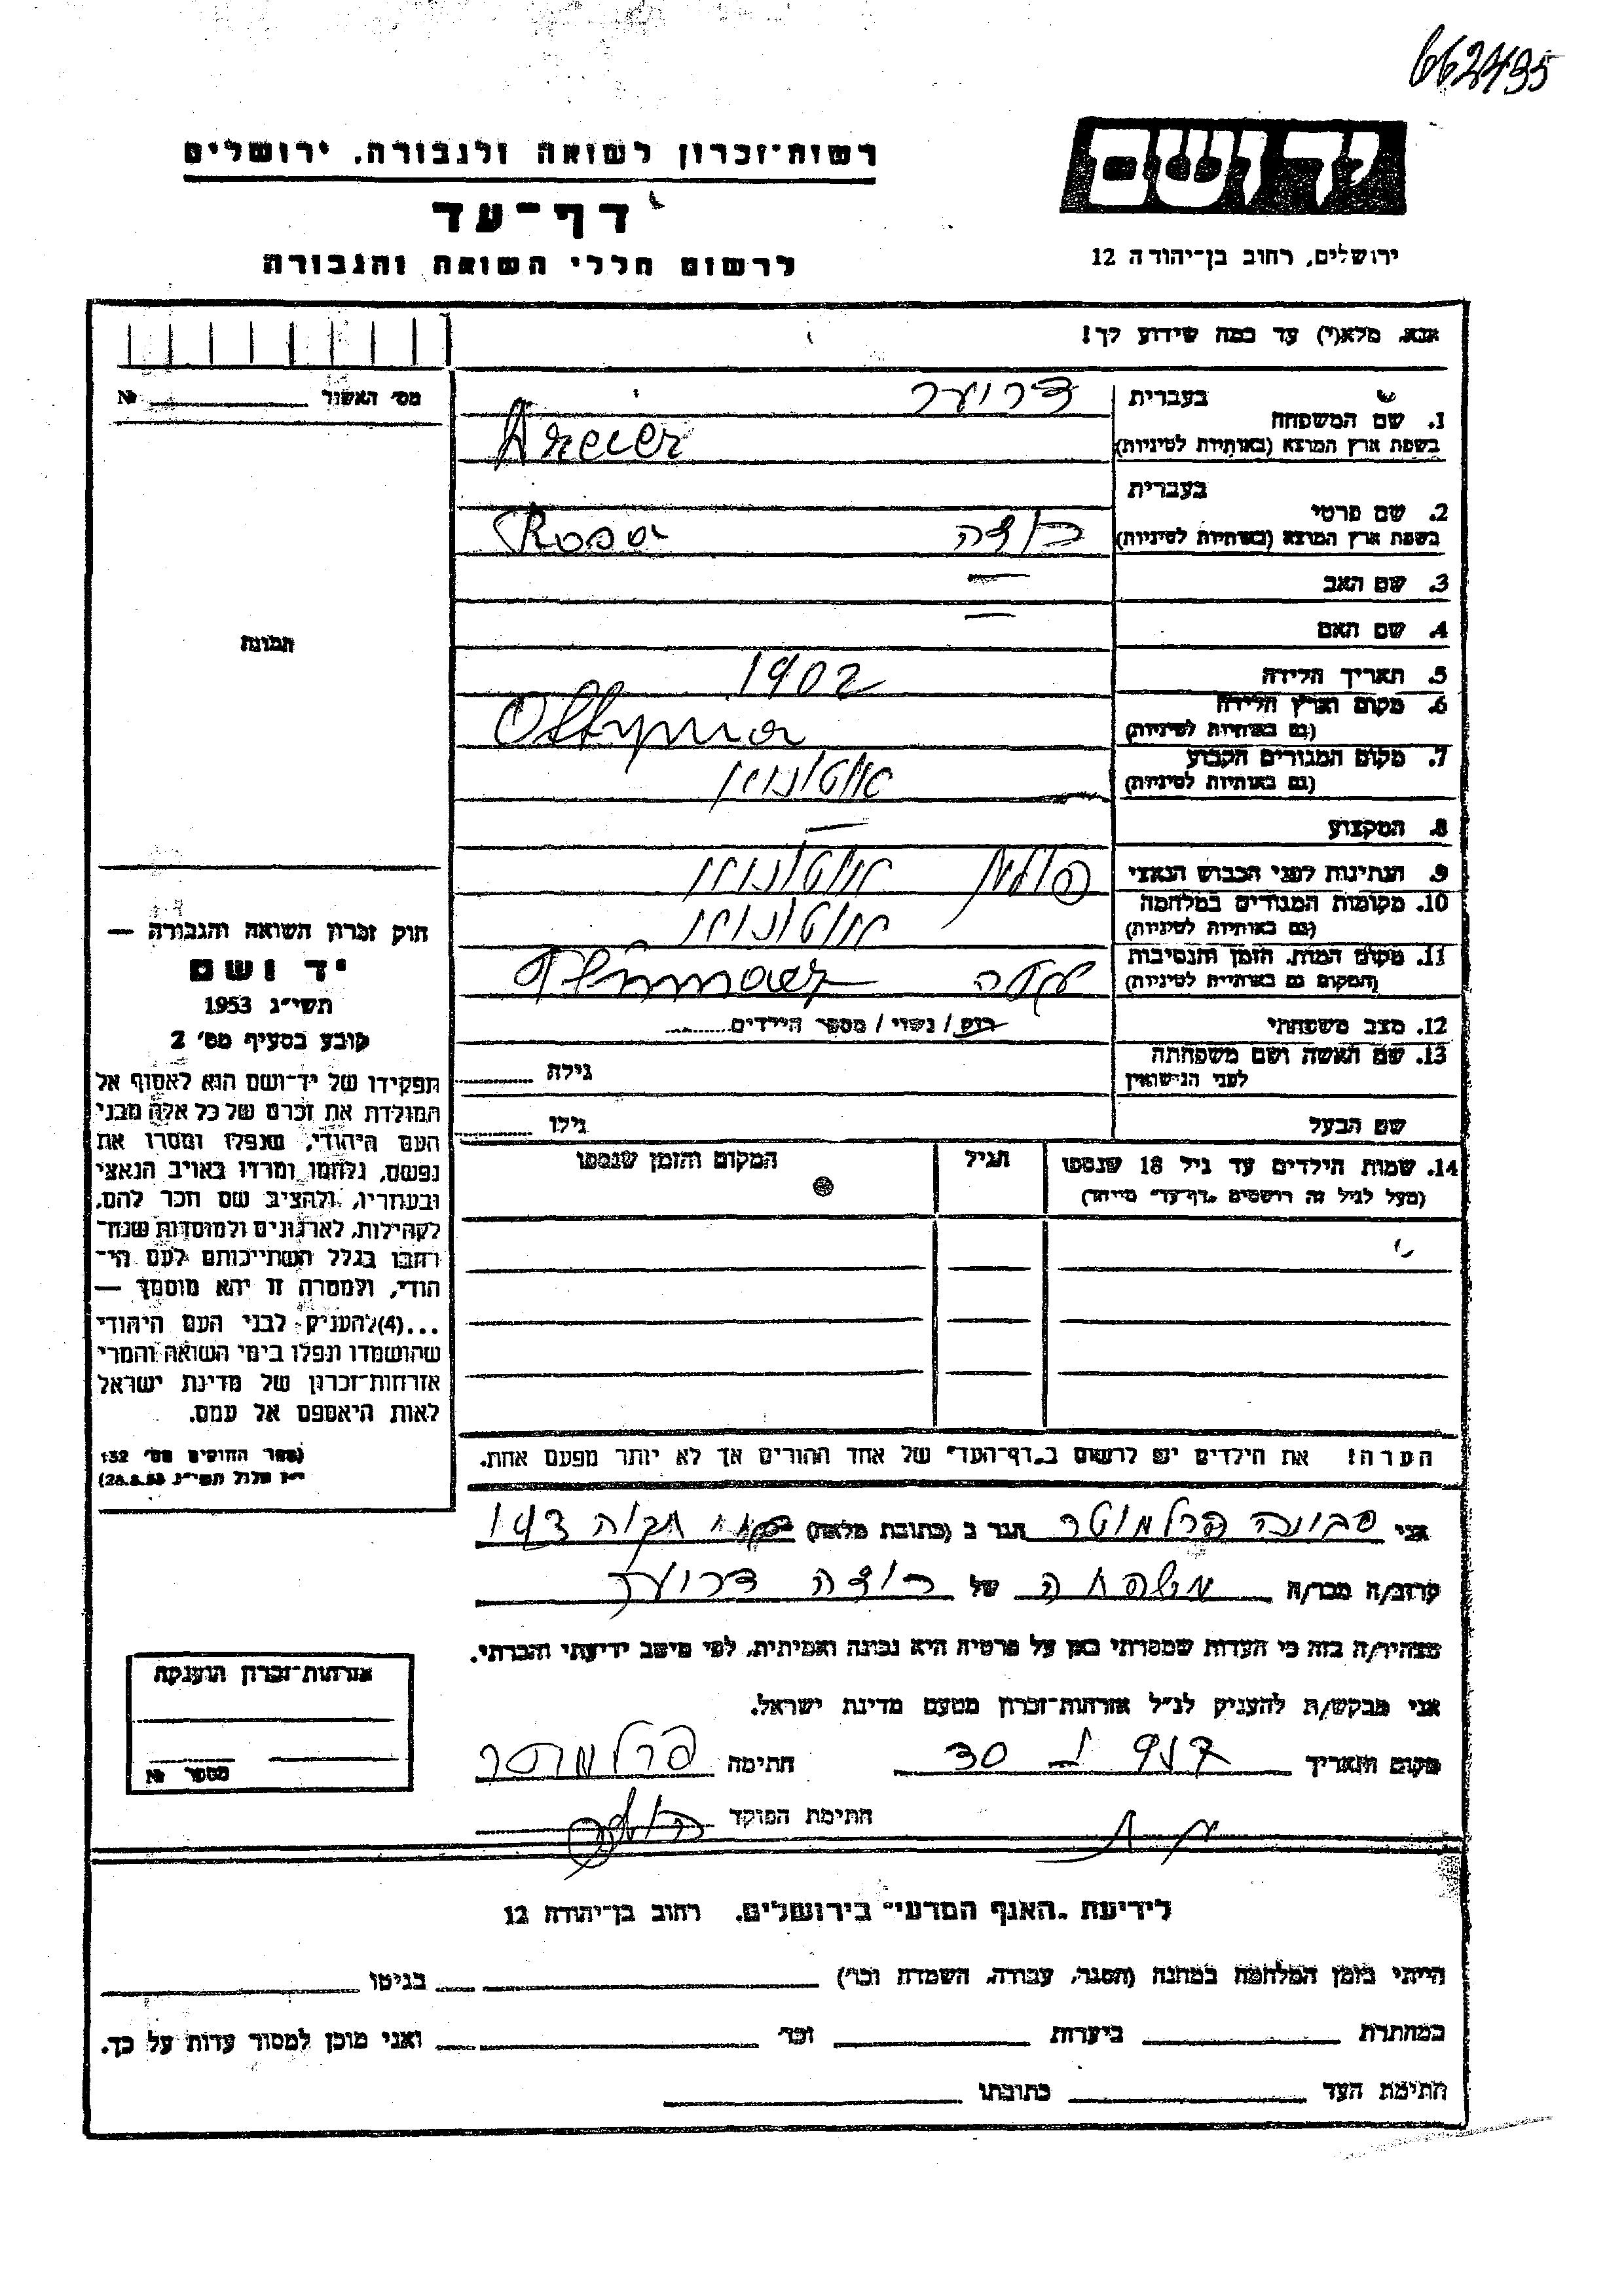 662495
יד ושם
רשות־זכרון לשואה ולגבורה, ירושלים
דף־עד
לרשום חללי השואה והגבורה
ירושלים, רחוב בן־יהודה 12
אנא, מלא(י) עד כמה שידוע לך!
מס׳ האשור № 
בעברית
1. שם המשפחה
בשפת ארץ המוצא (באותיות לטיניות)
בעברית
2. שם פרטי רוזה Rosa
בשפת ארץ המוצא (באותיות לטיניות)
3. שם האב —
4. שם האם —
תמונה
5. תאריך הלידה 1902
6. מקום וארץ הלידה Ottynia
(גם באותיות לטיניות)
7. מקום המגורים הקבוע אוטוניה
(גם באותיות לטיניות)
8. המקצוע —
9. הנתינות לפני הכבוש הנאצי
10. מקומות המגורים במלחמה
(גם באותיות לטיניות)
11. מקום המות, הזמן והנסיבות
(המקום גם באותיות לטיניות)
12. מצב משפחתי רווק / נשוי / מספר הילדים
13. שם האשה ושם משפחתה גילה
לפני הנישואין
שם הבעל גילו
14. שמות הילדים עד גיל 18 שנספו הגיל המקום והזמן שנספו
(מעל לגיל זה רושמים „דף־עד״ מיוחד)
הערה! את הילדים יש לרשום ב„דף־העד״ של אחד ההורים אך לא יותר מפעם אחת.
חוק זכרון השואה והגבורה —
יד ושם
תשי״ג 1953
קובע בסעיף מס׳ 2
תפקידו של יד־ושם הוא לאסוף אל
המולדת את זכרם של כל אלה מבני
העם היהודי, שנפלו ומסרו את
נפשם, נלחמו ומרדו באויב הנאצי
ובעוזריו, ולהציב שם וזכר להם,
לקהילות, לארגונים ולמוסדות שנח־
רחבו בגלל השתייכותם לעם הי־
הודי, ולמטרה זו יהא מוסמך —
...(4)להעניק לבני העם היהודי
שהושמדו ונפלו בימי השואה והמרי
אזרחות־זכרון של מדינת ישראל
לאות היאספם אל עמם.
(ספר החוקים מס׳ 132
י״ז אלול תשי״ג 28.8.53)
אני סבינה פרלמוטר הגר ב (כתובת מלאה)
קרוב/ה מכר/ה משפחה של רוזה דרוער
מצהיר/ה בזה כי העדות שמסרתי כאן על פרטיה היא נכונה ואמיתית, לפי מיטב ידיעתי והכרתי.
אני מבקש/ת להעניק לנ״ל אזרחות־זכרון מטעם מדינת ישראל.
מקום ותאריך חתימה פרלמוטר
חתימת הפוקד
אזרחות־זכרון הוענקה
מספר №
לידיעת „האגף המדעי״ בירושלים, רחוב בן־יהודה 12
הייתי בזמן המלחמה במחנה (הסגר, עבודה, השמדה וכו׳) בגיטו
במחתרת ביערות וכו׳ ואני מוכן למסור עדות על כך.
חתימת העד כתובתו